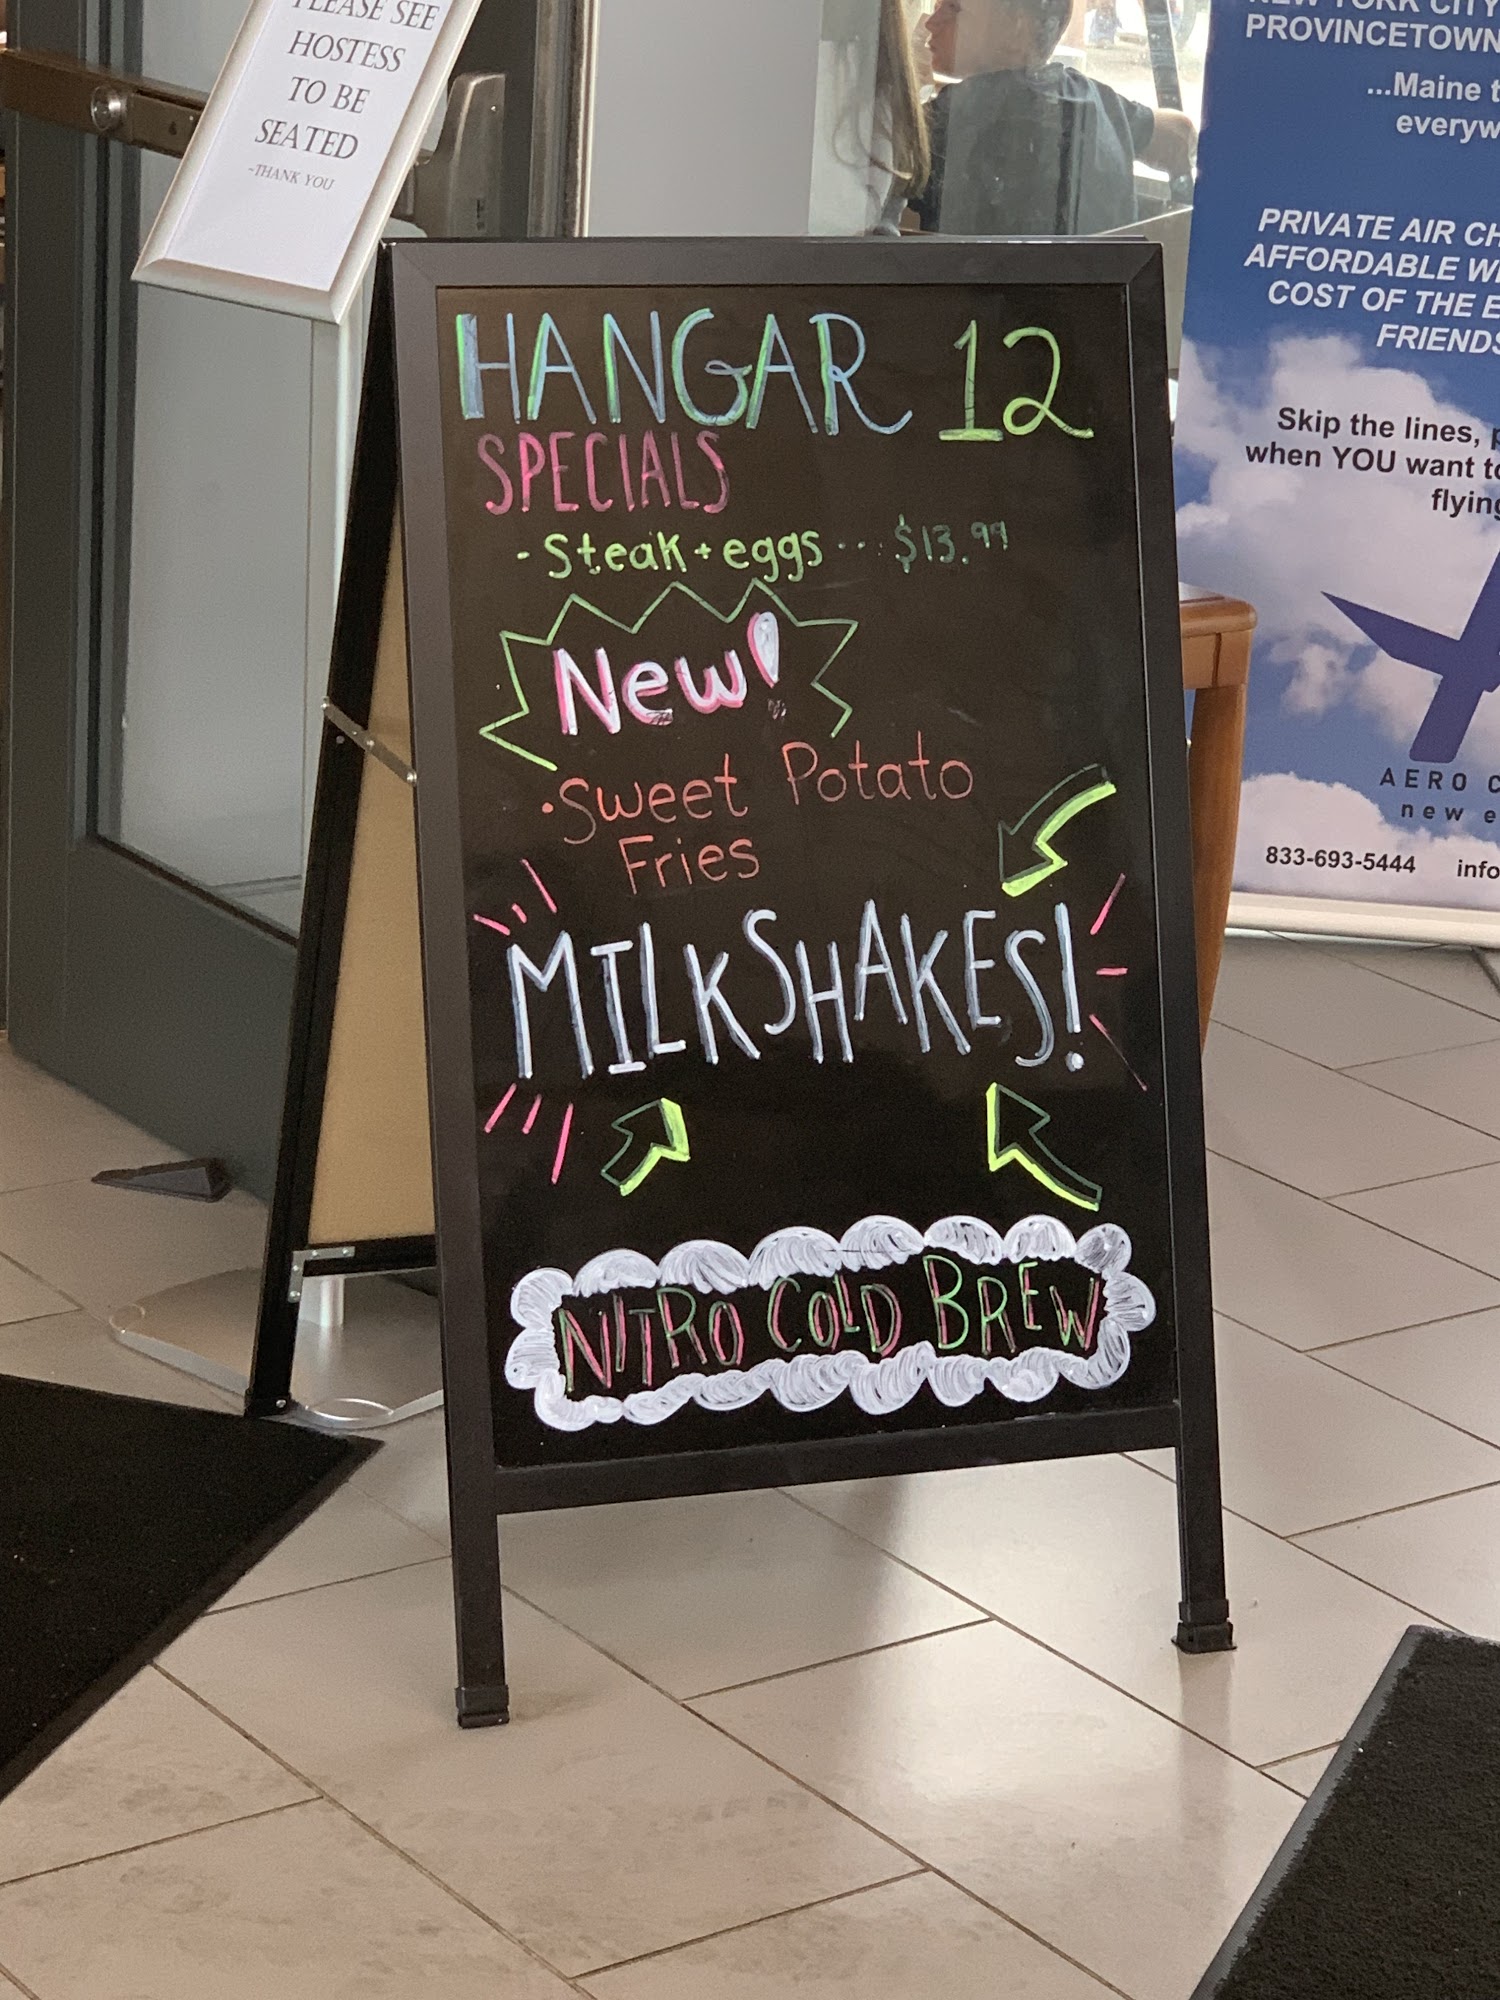 PLEASE SEE
HOSTESS
TO BE
SEATED
-THANK YOU
HANGAR 12
SPECIALS
- Steak + eggs ..... $13.99
New!
• Sweet Potato
Fries
MILKSHAKES!
NITRO COLD BREW
NEW YORK CITY
PROVINCETOWN
...Maine t
everyw
PRIVATE AIR CH
AFFORDABLE W
COST OF THE E
FRIENDS
Skip the lines, p
when YOU want to
flying
AERO C
new e
833-693-5444 info